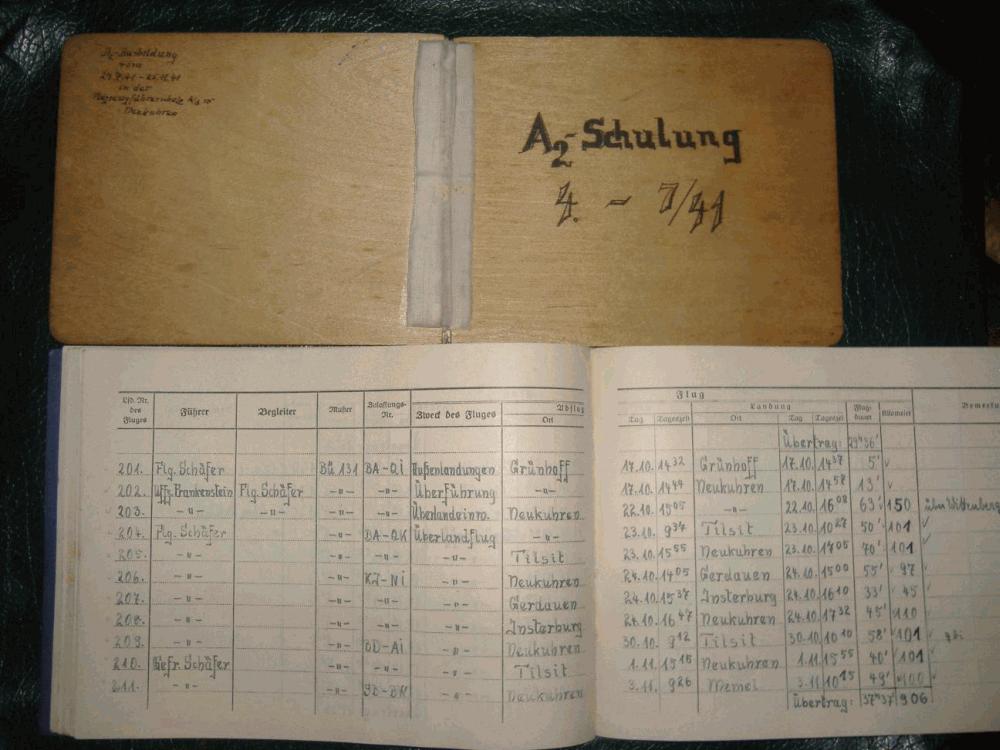 A2-Ausbildung
vom
in der
Flugzeugführerschule A/B
Neukuhren
A2-Schulung
4. - 7/41
Lfd. Nr. des Fluges
Führer
Begleiter
Muster
Zulassungs-Nr.
Zweck des Fluges
Abflug
Ort
Flug
Tag
Tageszeit
Landung
Ort
Tag
Tageszeit
Flugdauer
Kilometer
Übertrag: 29h56'
201. Flg. Schäfer Bü 131 BA-QI Außenlandungen Grünhoff 17.10. 14 32 Grünhoff 17.10. 14 37 5'
202. Uffz. Frankenstein Flg. Schäfer -"- -"- Überführung -"- 17.10. 14 44 Neukuhren 17.10. 14 57 13'
203. -"- -"- -"- -"- Überlandeinw. Neukuhren 22.10. 15 05 -"- 22.10. 16 08 63' 150 über Wittenberg
204. Flg. Schäfer -"- BA-QK Überlandflug -"- 23.10. 9 37 Tilsit 23.10. 10 27 50' 101
205. -"- -"- -"- -"- Tilsit 23.10. 15 55 Neukuhren 23.10. 17 05 70' 101
206. -"- -"- -"- Neukuhren 24.10. 14 05 Gerdauen 24.10. 15 00 55' 97
207. -"- -"- -"- -"- Gerdauen 24.10. 15 37 Insterburg 24.10. 16 10 33' 45
208. -"- -"- -"- -"- Insterburg 24.10. 16 47 Neukuhren 24.10. 17 32 45' 110
209. -"- -"- BD-AI -"- Neukuhren 30.10. 9 12 Tilsit 30.10. 10 10 58' 101
210. Gefr. Schäfer -"- -"- -"- Tilsit 1.11. 15 15 Neukuhren 1.11. 15 55 40' 101
211. -"- -"- -"- Neukuhren 3.11. 9 26 Memel 3.11. 10 15 49' 100
Übertrag: 37h37' 906